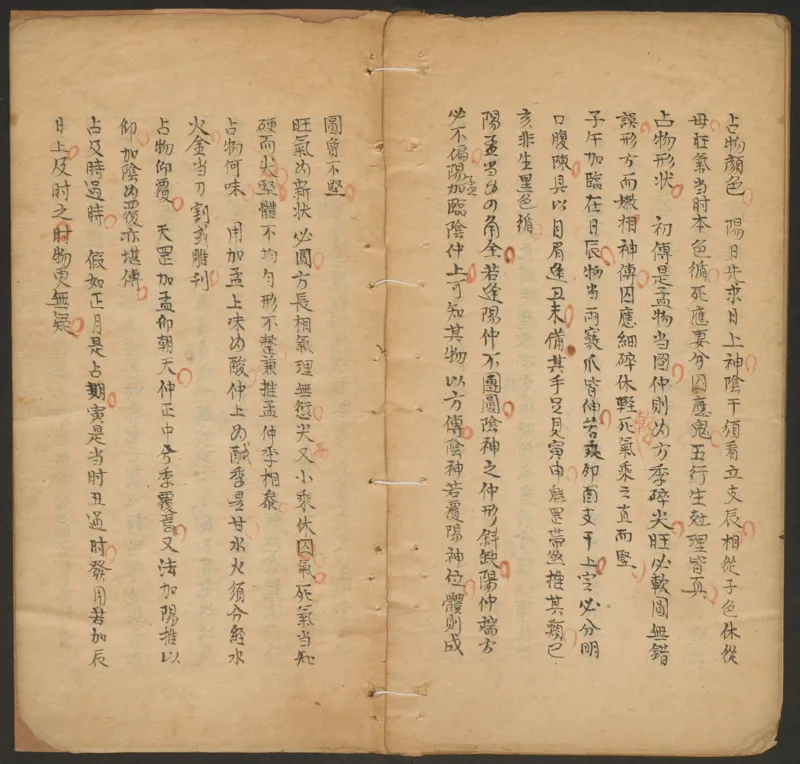 占物顏色　陽日先求日上神陰干須看立支辰相從子色休從
母旺氣当时本色循死應妻分囚應鬼五行生尅理皆真
占物形状　初傳是孟物当圓仲則為方季碎尖旺必軟圓無錯
誤形方而嫩相神傳囚應細碎休輕死氣乘之直而堅
子午加臨在日辰物当兩竅爪皆伸若乘卯酉支干上定必分明
口腹陳具以目眉逢丑未備其手足見寅申魁罡帶煞推其類已
亥非生里色循
陽孟当為の角全若逢陽仲不團圓陰神之仲形斜缺陽仲端方
必不偏陽孟加臨陰仲上可知其物以方傳陰神若覆陽神位體則成
圓兌不堅
旺氣為新状必圓方長相氣理無愆尖又小乘休囚氣死氣当知
硬而尖堅體不均勻形不整兼推孟仲季相叅
占物何味　用加孟上味為酸仲上為醎季是甘水火須分經水
火金当刀割或雕刋
占物仰覆　天罡加孟仰朝天仲正中兮季覆焉又法加陽推以
仰加陰為覆亦堪傳
占及時過時　假如正月是占期寅是当时丑過时發用若加辰
日上及时之时物更無疑